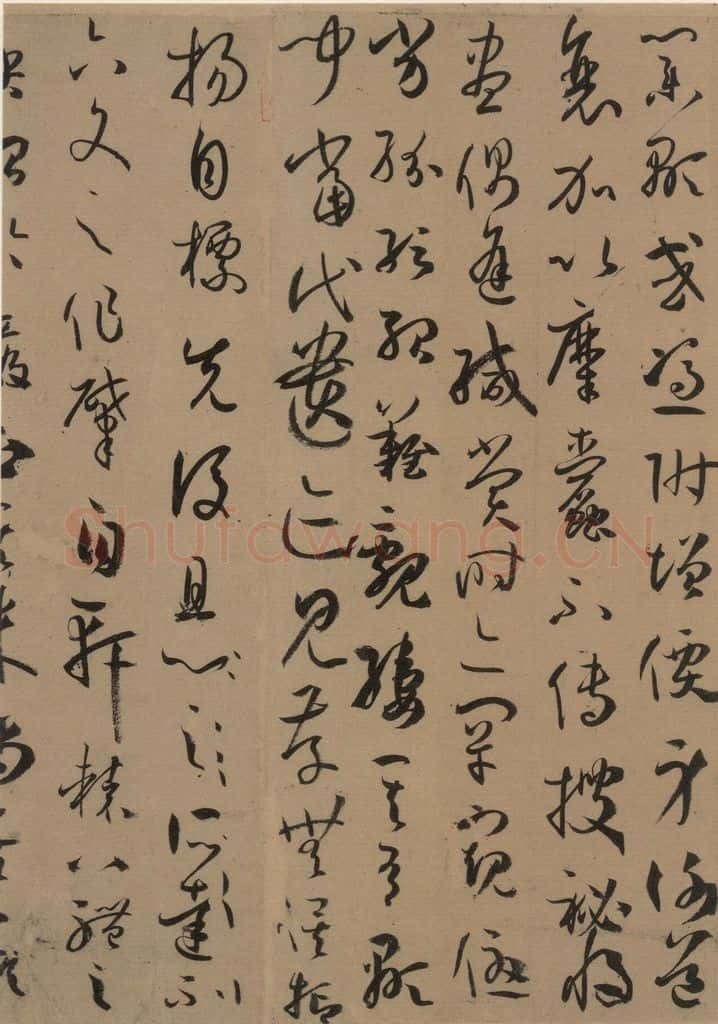 業顯或憑附增價身謝道
衰加以糜蠹不傳搜秘將
盡偶逢緘賞時亦罕窺優
劣紛紜殆難覼縷其有顯
聞當代遺跡見存無俟抑
揚自標先後且心之所達不
六文之作肇自軒轅八體之
Shufawang.CN